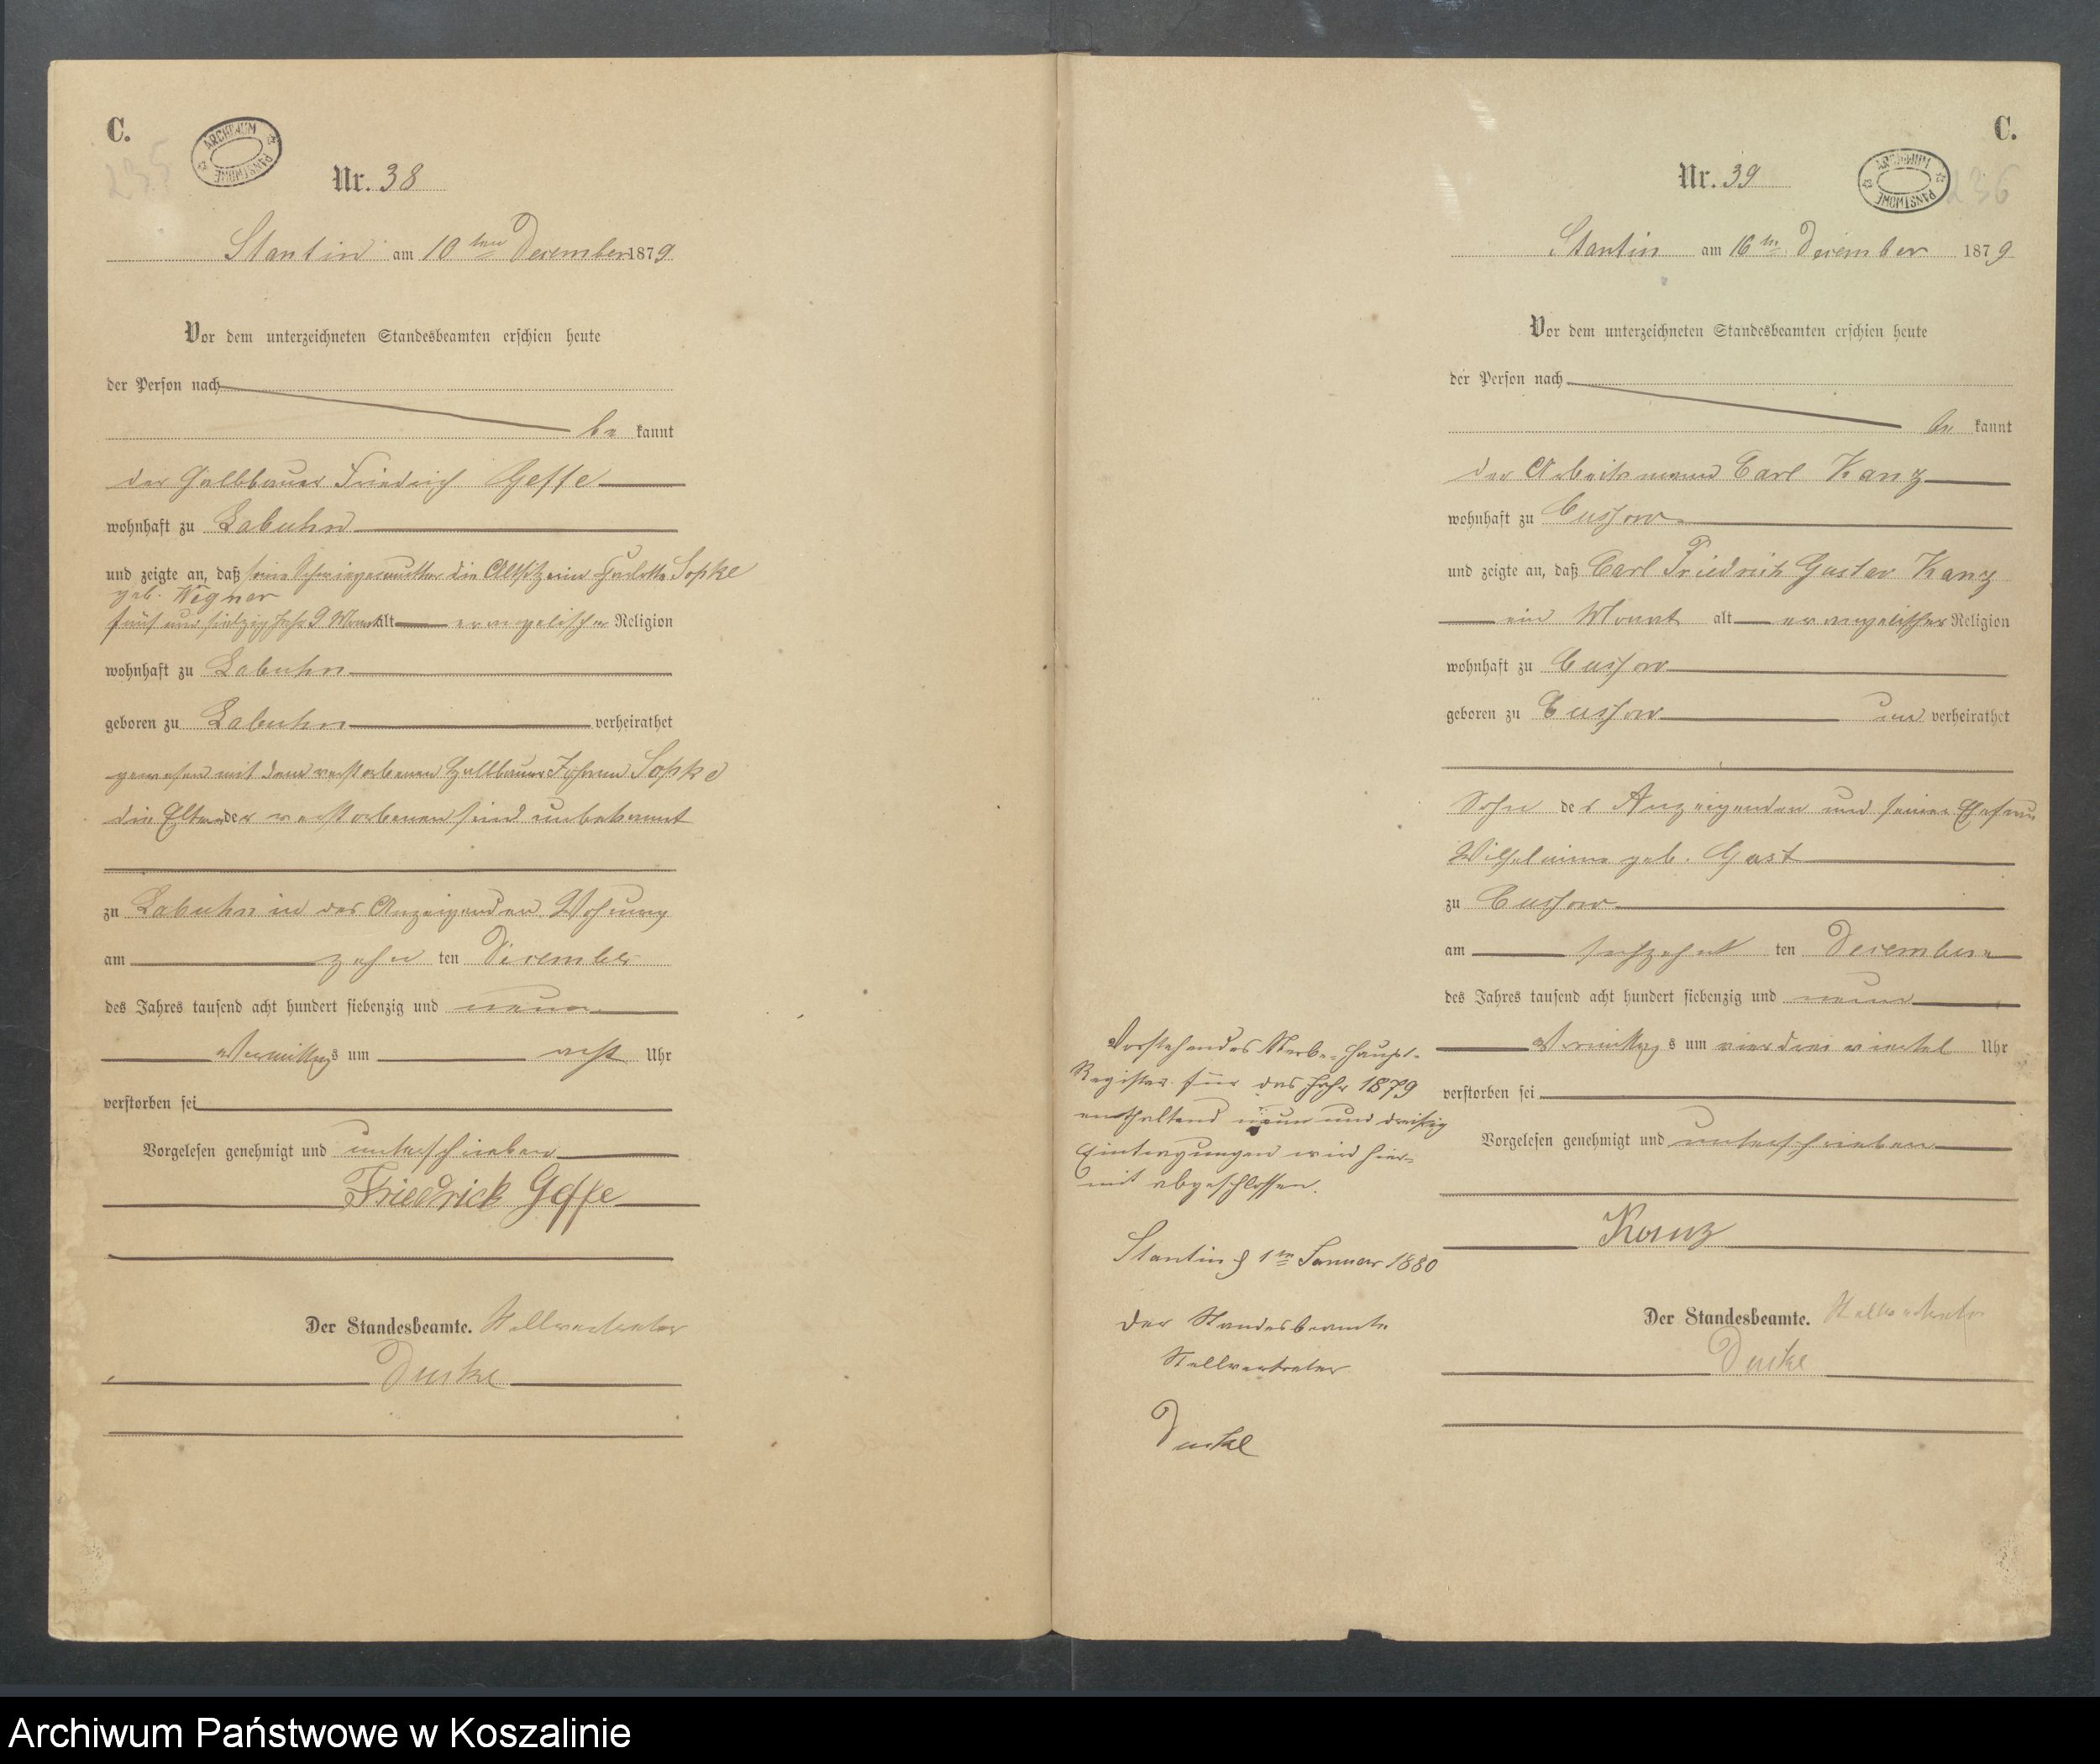 C.
ARCHIWUM PAŃSTWOWE
235
Nr. 38
Stantin am 10ten December 1879
Vor dem unterzeichneten Standesbeamten erschien heute
der Person nach
be kannt
der Halbbauer Friedrich Geffe
wohnhaft zu Labuhn
und zeigte an, daß seine Schwiegermutter die Altsitzerin Charlotte Sopke
geb. Wegner
fünf und siebzig Jahr 9 Monat alt evangelischer Religion
wohnhaft zu Labuhn
geboren zu Labuhn verheirathet
gewesen mit dem verstorbenen Halbbauer Johann Sopke
die Eltern der verstorbenen sind unbekannt
zu Labuhn in des Anzeigenden Wohnung
am zehn ten December
des Jahres tausend acht hundert siebenzig und neun
Vormittags um acht Uhr
verstorben sei
Vorgelesen genehmigt und unterschrieben
Friedrich Geffe
Der Standesbeamte. Stellvertreter
Duske
C.
ARCHIWUM PAŃSTWOWE
236
Nr. 39
Stantin am 16ten December 1879
Vor dem unterzeichneten Standesbeamten erschien heute
der Person nach
be kannt
der Arbeitsmann Carl Kanz
wohnhaft zu Cussow
und zeigte an, daß Carl Friedrich Gustav Kanz
ein Monat alt evangelischer Religion
wohnhaft zu Cussow
geboren zu Cussow un verheirathet
Sohn des Anzeigenden und seiner Ehefrau
Wilhelmine geb. Gast
zu Cussow
am sechzehnt ten December
des Jahres tausend acht hundert siebenzig und neun
Vormittags um vier drei viertel Uhr
verstorben sei
Vorgelesen genehmigt und unterschrieben
Kanz
Der Standesbeamte. Stellvertreter
Duske
Vorstehendes Sterbe-Haupt-
Register für das Jahr 1879
enthaltend neun und dreißig
Eintragungen wird hier-
mit abgeschlossen.
Stantin d 1ten Januar 1880
Der Standesbeamte
Stellvertreter
Duske
Archiwum Państwowe w Koszalinie